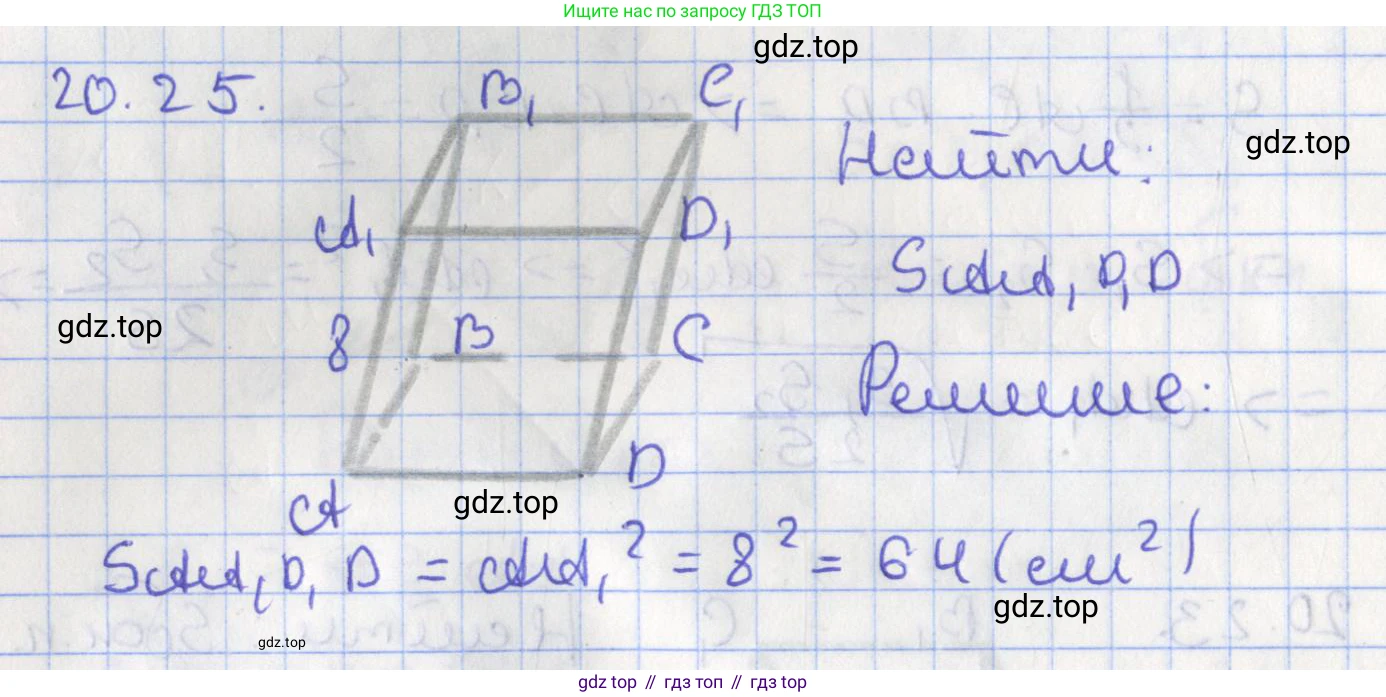 Ищите нас по запросу ГДЗ ТОП
gdz.top
20.25.
B₁
C₁
Найти:
gdz.top
A₁
D₁
S AA₁D₁D
gdz.top
8
B
C
Решение:
D
A
gdz.top
S AA₁D₁D = AA₁² = 8² = 64 (см²)
gdz.top
gdz.top
gdz top // гдз топ // гдз top